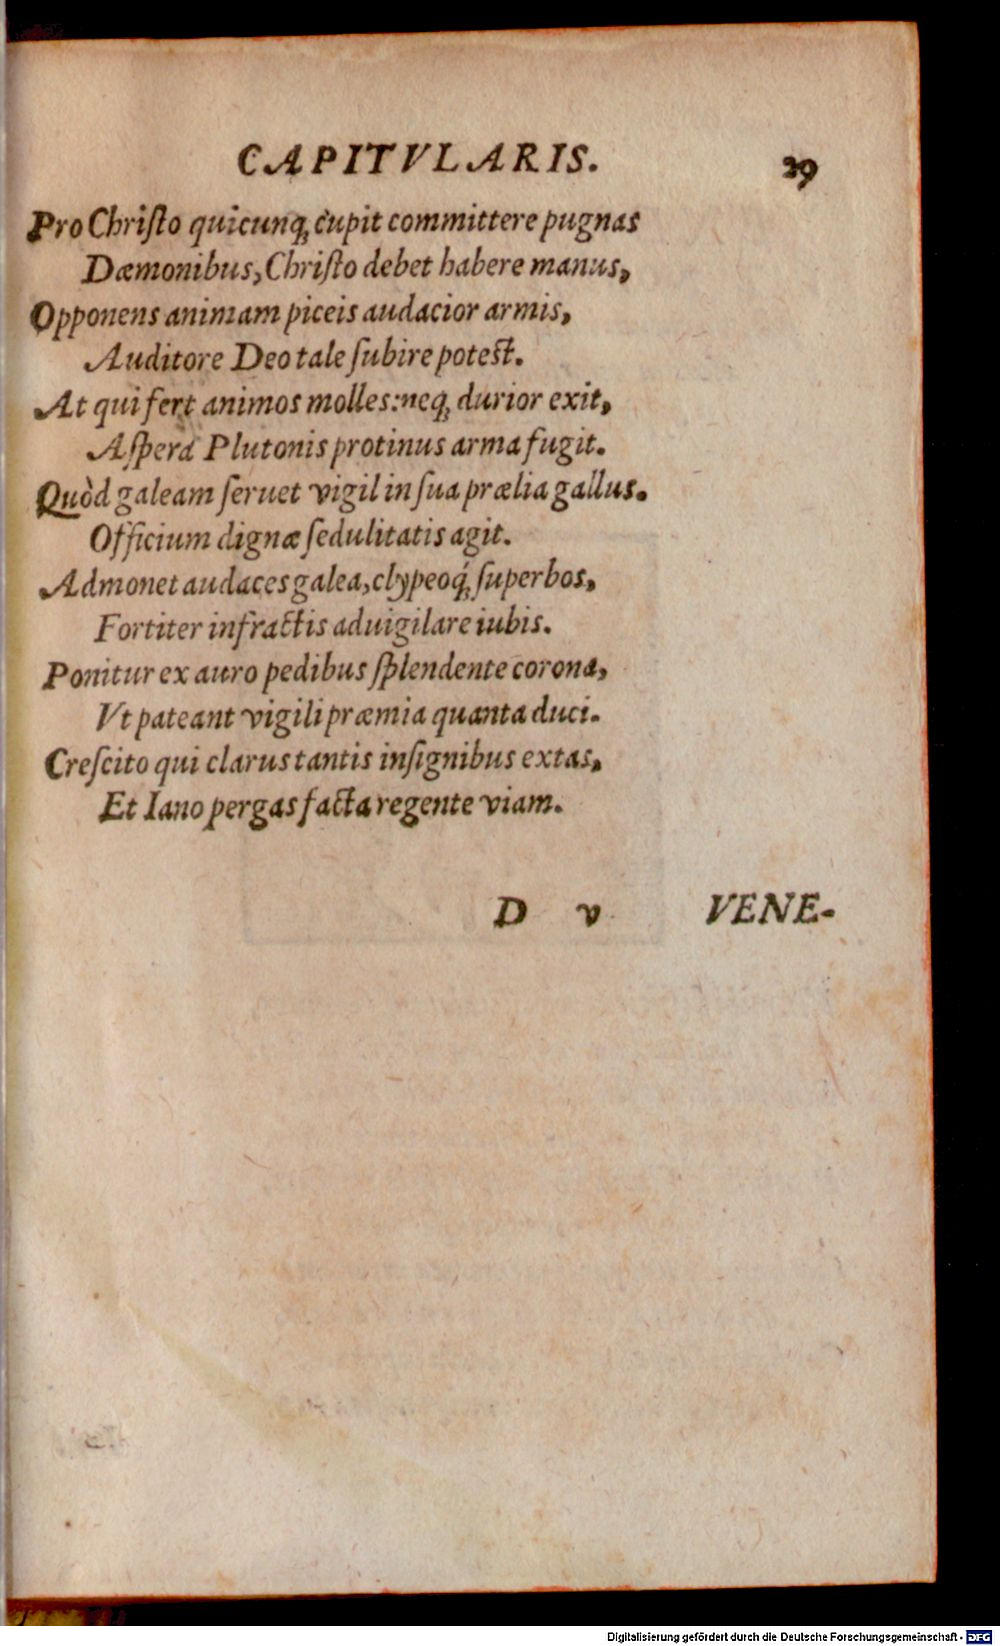 CAPITVLARIS. 29
Pro Chriſto quicunq́; cupit committere pugnas
Dæmonibus, Chriſto debet habere manus,
Opponens animam piceis audacior armis,
Auditore Deo tale ſubire poteſt.
At qui fert animos molles: neq; durior exit,
Aſpera Plutonis protinus arma fugit.
Quòd galeam ſeruet vigil in ſua prælia gallus.
Officium dignæ ſedulitatis agit.
Admonet audaces galea, clypeoq́; ſuperbos,
Fortiter infractis aduigilare iubis.
Ponitur ex auro pedibus ſplendente corona,
Vt pateant vigili præmia quanta duci.
Creſcito qui clarus tantis inſignibus extas,
Et Iano pergas facta regente viam.
D v VENE-
Digitalisierung gefördert durch die Deutsche Forschungsgemeinschaft - DFG